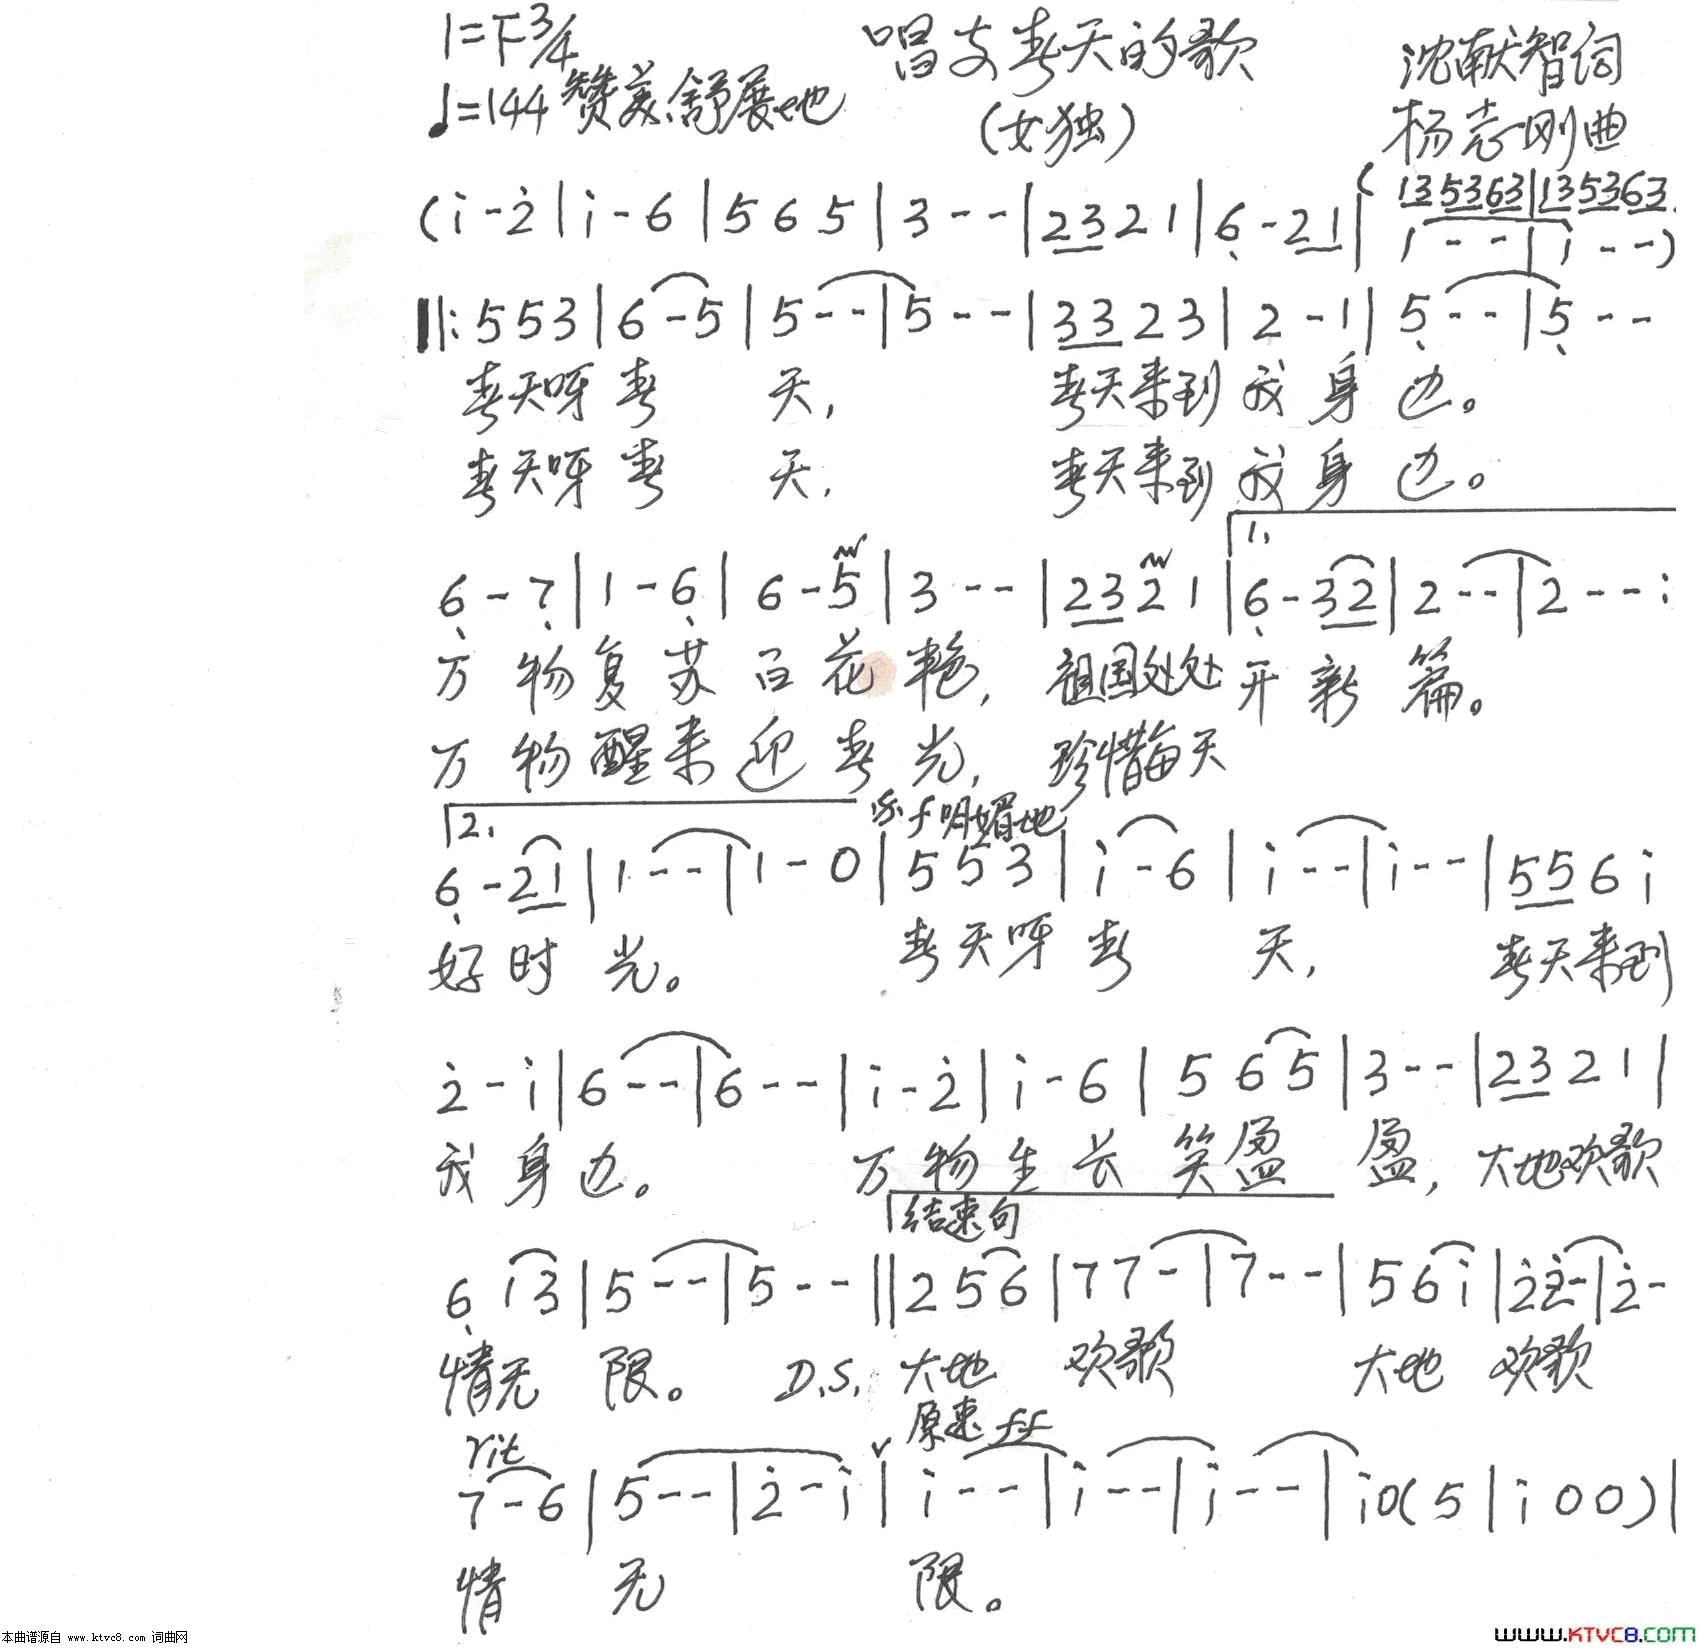 1=F 3/4 唱支春天的歌 沈献智词
♩=144 赞美.舒展地 (女独) 杨志刚曲
( 135363|135363.
(i - 2̇ | i - 6 | 5 6 5 | 3 - - | 2 3 2 1 | 6̣ - 2 1 | 1 - - | i - -)
‖: 5 5 3 | 6 - 5 | 5 - - | 5 - - | 3 3 2 3 | 2 - 1 | 5̣ - - | 5̣ - -
春天呀春 天, 春天来到我身边。
春天呀春 天, 春天来到我身边。
1.
6̣ - 7̣ | 1 - 6̣ | 6 - 5 | 3 - - | 2 3 2 1 | 6̣ - 3 2 | 2 - - | 2 - - :
万物复苏百花艳, 祖国处处开新篇。
万物醒来迎春光, 珍惜每天
2. 𝄋 f 明媚地
6̣ - 2 1 | 1 - - | 1 - 0 | 5 5 3 | i - 6 | i - - | i - - | 5 5 6 i
好时光。 春天呀春 天, 春天来到
2̇ - i | 6 - - | 6 - - | i - 2̇ | i - 6 | 5 6 5 | 3 - - | 2 3 2 1 |
我身边。 万物生长笑盈盈, 大地欢歌
结束句
6̣ i 3 | 5 - - | 5 - - ‖ 2 5 6 | 7 7 - | 7 - - | 5 6 i | 2̇ 2̇ - | 2̇ -
情无限。 D.S. 大地 欢歌 大地 欢歌
rit 原速 ff
7 - 6 | 5 - - | 2̇ - i | i - - | i - - | i - - | i 0 ( 5 | i 0 0 ) |
情 无 限。
本曲谱源自 www.ktvc8.com 词曲网
www.KTVC8.COM